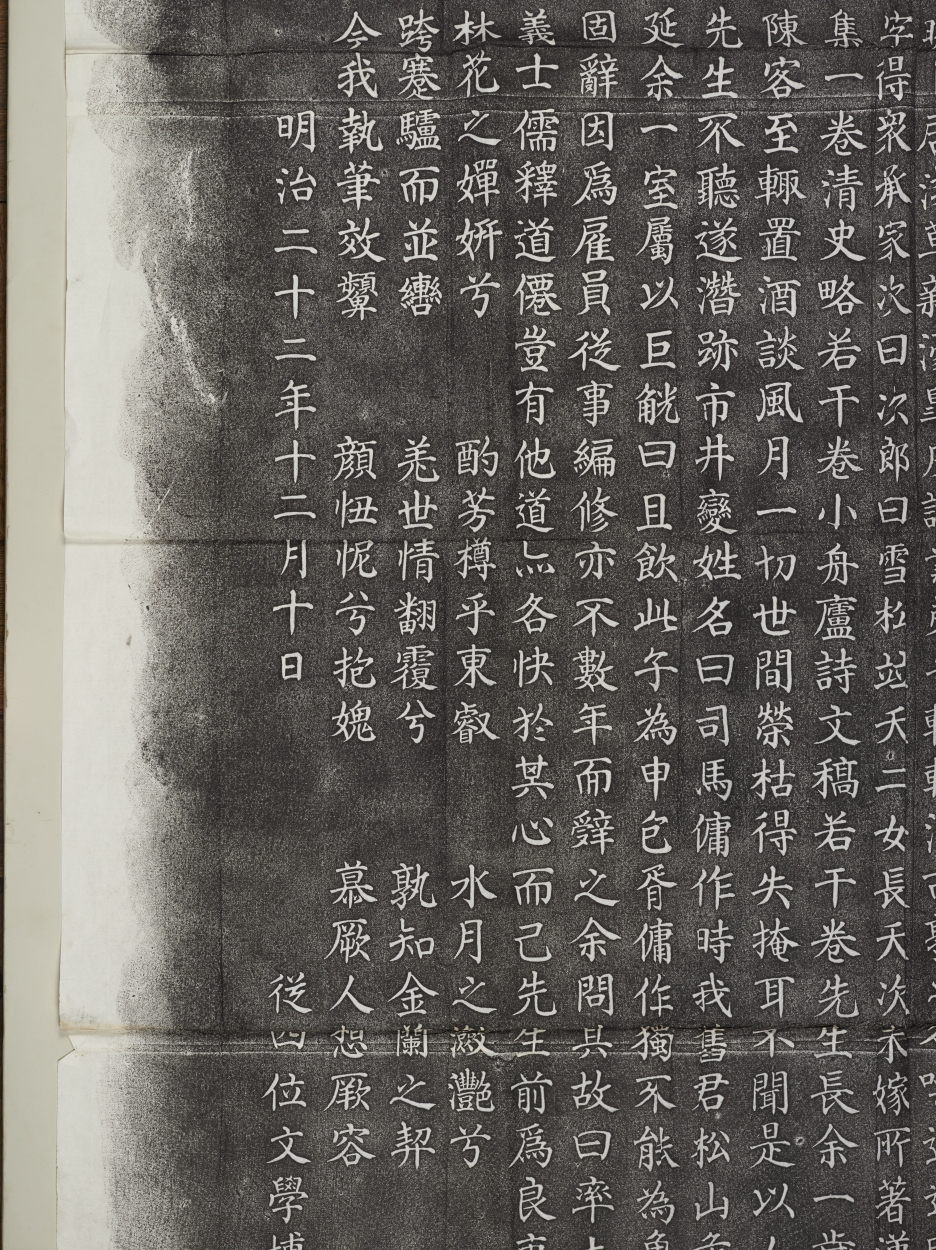 字得衆承家次曰次郎曰雪松竝夭二女長夭次未嫁所著漢
集一卷清史略若干卷小舟廬詩文稿若干卷先生長余一歲
陳客至輙置酒談風月一切世間榮枯得失掩耳不聞是以
先生不聽遂潛跡市井變姓名曰司馬傭作時我舊君松山
延余一室屬以巨觥曰且飲此子為申包胥傭作獨不能為
固辭因爲雇員從事編修亦不數年而辤之余問其故曰率
義士儒釋道僊豈有他道亦各快於其心而己先生前爲良
林花之嬋妍兮 酌芳樽乎東叡 水月之瀲灩兮
跨蹇驢而並轡 羌世情翻覆兮 孰知金蘭之契
今我執筆效顰 顏忸怩兮抱媿 慕厥人想厥容
明治二十二年十二月十日 從四位文學博